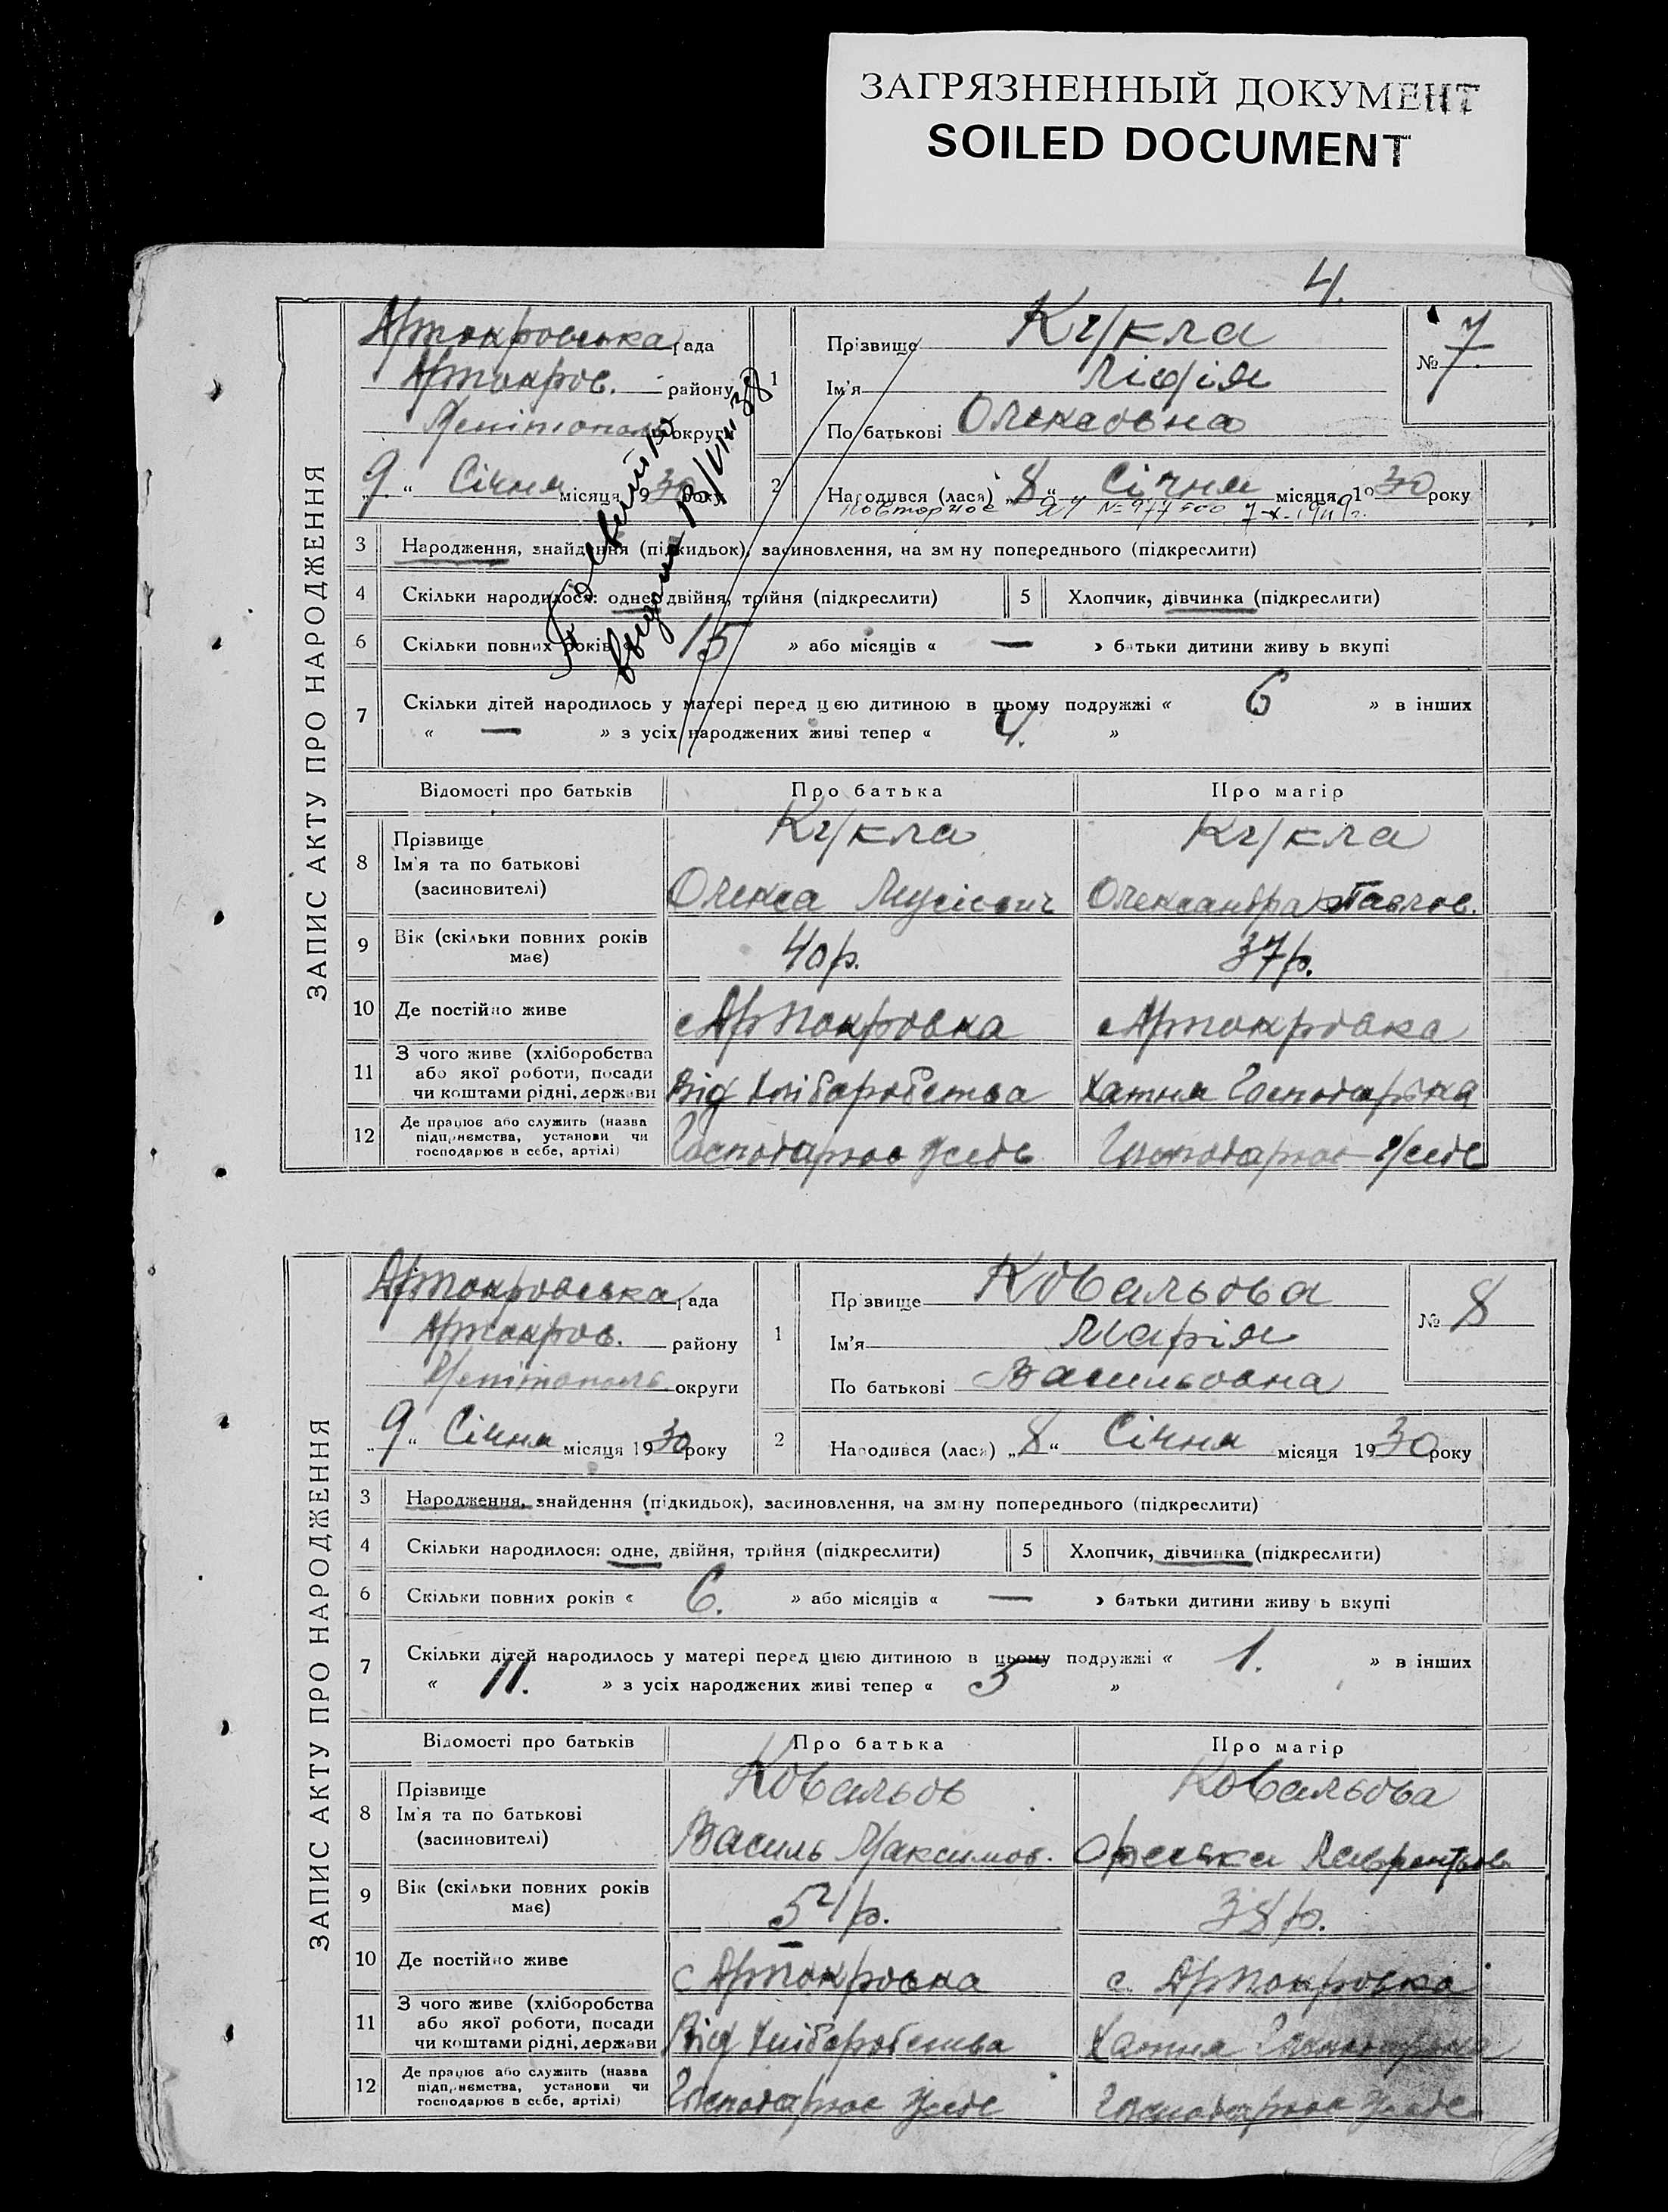 ЗАГРЯЗНЕННЫЙ ДОКУМЕНТ
SOILED DOCUMENT
4.
ЗАПИС АКТУ ПРО НАРОДЖЕННЯ
рада
району
округи
„9“ Січня місяця 1930 року
1 Прізвище Кукла
Ім'я Лідія
По батькові Олексовна
№ 7
2 Народився (лася) „8“ Січня місяця 1930 року
повторное ЯУ № 977500 7-X-1949г.
3 Народження, знайдення (підкидьок), засиновлення, на зміну попереднього (підкреслити)
4 Скільки народилося: одне, двійня, трійня (підкреслити)
5 Хлопчик, дівчинка (підкреслити)
6 Скільки повних років « 15 » або місяців « — » батьки дитини живуть вкупі
7 Скільки дітей народилось у матері перед цією дитиною в цьому подружжі « 6 » в інших
« — » з усіх народжених живі тепер « 4. »
Відомості про батьків Про батька Про матір
8 Прізвище Кукла Кукла
Ім'я та по батькові
(засиновителі) Олекса Мусієвич Олександра Павлов.
9 Вік (скільки повних років має) 40 р. 37 р.
10 Де постійно живе
11 З чого живе (хліборобства
або якої роботи, посади
чи коштами рідні, держави Від хліборобства Хатня Господарка
12 Де працює або служить (назва
підприємства, установи чи
господарює в себе, артілі) Господарює у себе Господарює у себе
ЗАПИС АКТУ ПРО НАРОДЖЕННЯ
рада
району
округи
„9“ Січня місяця 1930 року
1 Прізвище Ковальова
Ім'я Марія
По батькові Васильовна
№ 8
2 Народився (лася) „8“ Січня місяця 1930 року
3 Народження, знайдення (підкидьок), засиновлення, на зміну попереднього (підкреслити)
4 Скільки народилося: одне, двійня, трійня (підкреслити)
5 Хлопчик, дівчинка (підкреслити)
6 Скільки повних років « 6. » або місяців « — » батьки дитини живуть вкупі
7 Скільки дітей народилось у матері перед цією дитиною в цьому подружжі « 1. » в інших
« 11. » з усіх народжених живі тепер « 5 »
Відомості про батьків Про батька Про матір
8 Прізвище Ковальов Ковальова
Ім'я та по батькові
(засиновителі) Василь Максимов.
9 Вік (скільки повних років має) 52 р. 38 р.
10 Де постійно живе
11 З чого живе (хліборобства
або якої роботи, посади
чи коштами рідні, держави Від хліборобства Хатня Господарка
12 Де працює або служить (назва
підприємства, установи чи
господарює в себе, артілі) Господарює у себе Господарює у себе